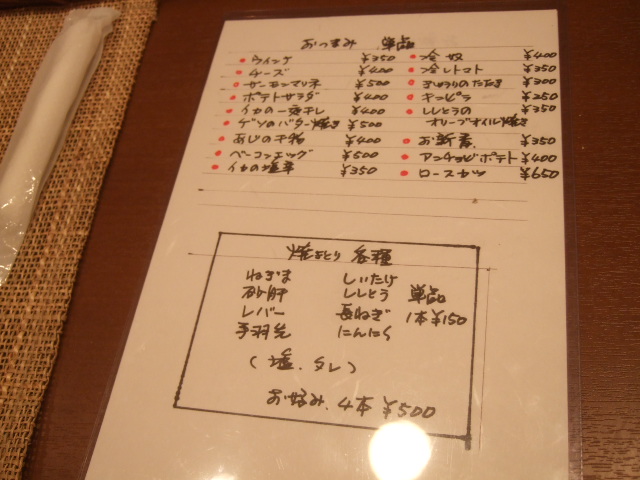 おつまみ 単品
ウインナ ¥350
チーズ ¥400
サーモンマリネ ¥500
ポテトサラダ ¥400
イカの一夜干し ¥400
ゲソのバター焼き ¥500
あじの干物 ¥400
ベーコンエッグ ¥500
イカの塩辛 ¥350
冷奴 ¥400
冷しトマト ¥350
きゅうりのたたき ¥300
キンピラ ¥350
ししとうの ¥350
オリーブオイル焼き
お新香 ¥350
アンチョビポテト ¥400
ロースカツ ¥650
焼きとり 各種
ねぎま しいたけ
砂肝 ししとう 単品
レバー 長ねぎ 1本¥150
手羽先 にんにく
(塩.タレ)
お好み.4本 ¥500